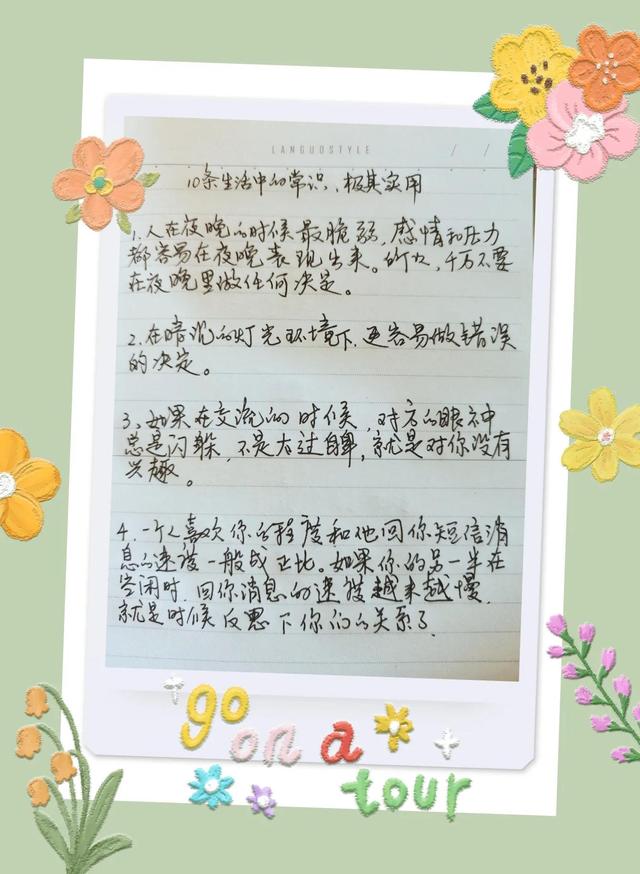 LANGUOSTYLE / /
10条生活中的常识、极其实用
1.人在夜晚的时候最脆弱,感情和压力
都容易在夜晚表现出来。所以,千万不要
在夜晚里做任何决定。
2.在暗沉的灯光环境下,更容易做错误
的决定。
3、如果在交流的时候,对方的眼神
总是闪躲,不是太过自卑,就是对你没有
兴趣。
4.一个人喜欢你的程度和他回你短信消
息的速度一般成正比。如果你的另一半在
空闲时,回你消息的速度越来越慢,
就是时候反思下你们的关系了
go
on a
tour